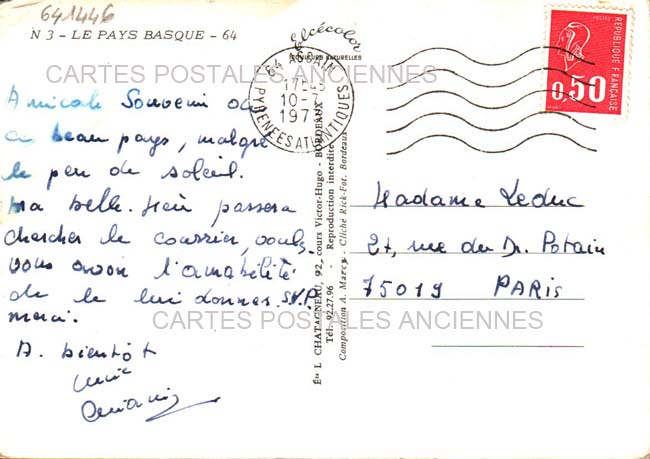 641446
N 3 - LE PAYS BASQUE - 64
elcécolor
COULEURS NATURELLES
CARTES POSTALES ANCIENNES
64
17H45
10-7
197
PYRENEES ATLANTIQUES
REPUBLIQUE FRANÇAISE
0,50
Amicale Souvenir de
ce beau pays, malgré
le peu de soleil.
Ma belle-sœur passera
chercher le courrier, voulez-
vous avoir l'amabilité
de le lui donner S.V.P.
merci.
A bientôt
Éts L. CHATAGNEAU, 92, cours Victor-Hugo - BORDEAUX
Tél. 92.27.96 - Reproduction interdite
Composition A. Marcy - Cliché Rick-Fot. Bordeaux
Madame Leduc
27, rue du Dr. Potain
75019 PARIS
CARTES POSTALES ANCIENNES